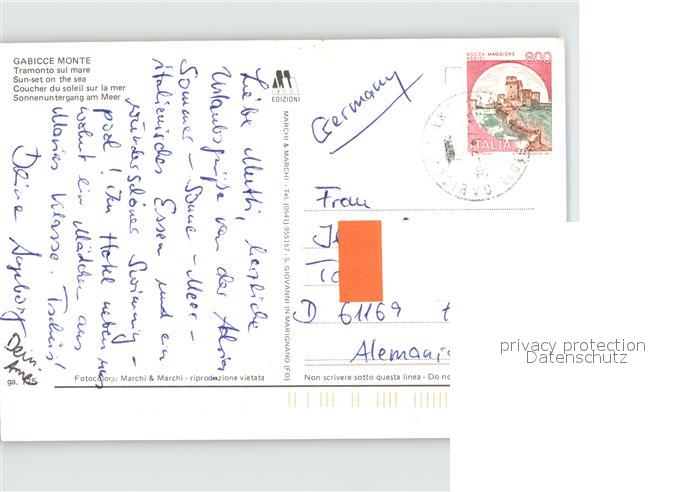 GABICCE MONTE
Tramonto sul mare
Sun-set on the sea
Coucher du soleil sur la mer
Sonnenuntergang am Meer
Liebe Mutti, herzliche
Urlaubsgrüße von der Adria.
Sommer - Sonne - Meer -
italienisches Essen und ein
wunderschöner Swimming-
pool! Im Hotel neben uns
wohnt ein Mädchen aus
Maries Klasse. Tschüß!
Deine Ingeborg
ga.
EDIZIONI
MARCHI & MARCHI - Tel. (0541) 955157 - S. GIOVANNI IN MARIGNANO (FO)
Fotocolors: Marchi & Marchi - riproduzione vietata
Germany
ROCCA MAGGIORE
800
ITALIA
Frau
D 61169
Alemania
Non scrivere sotto questa linea - Do no
privacy protection
Datenschutz